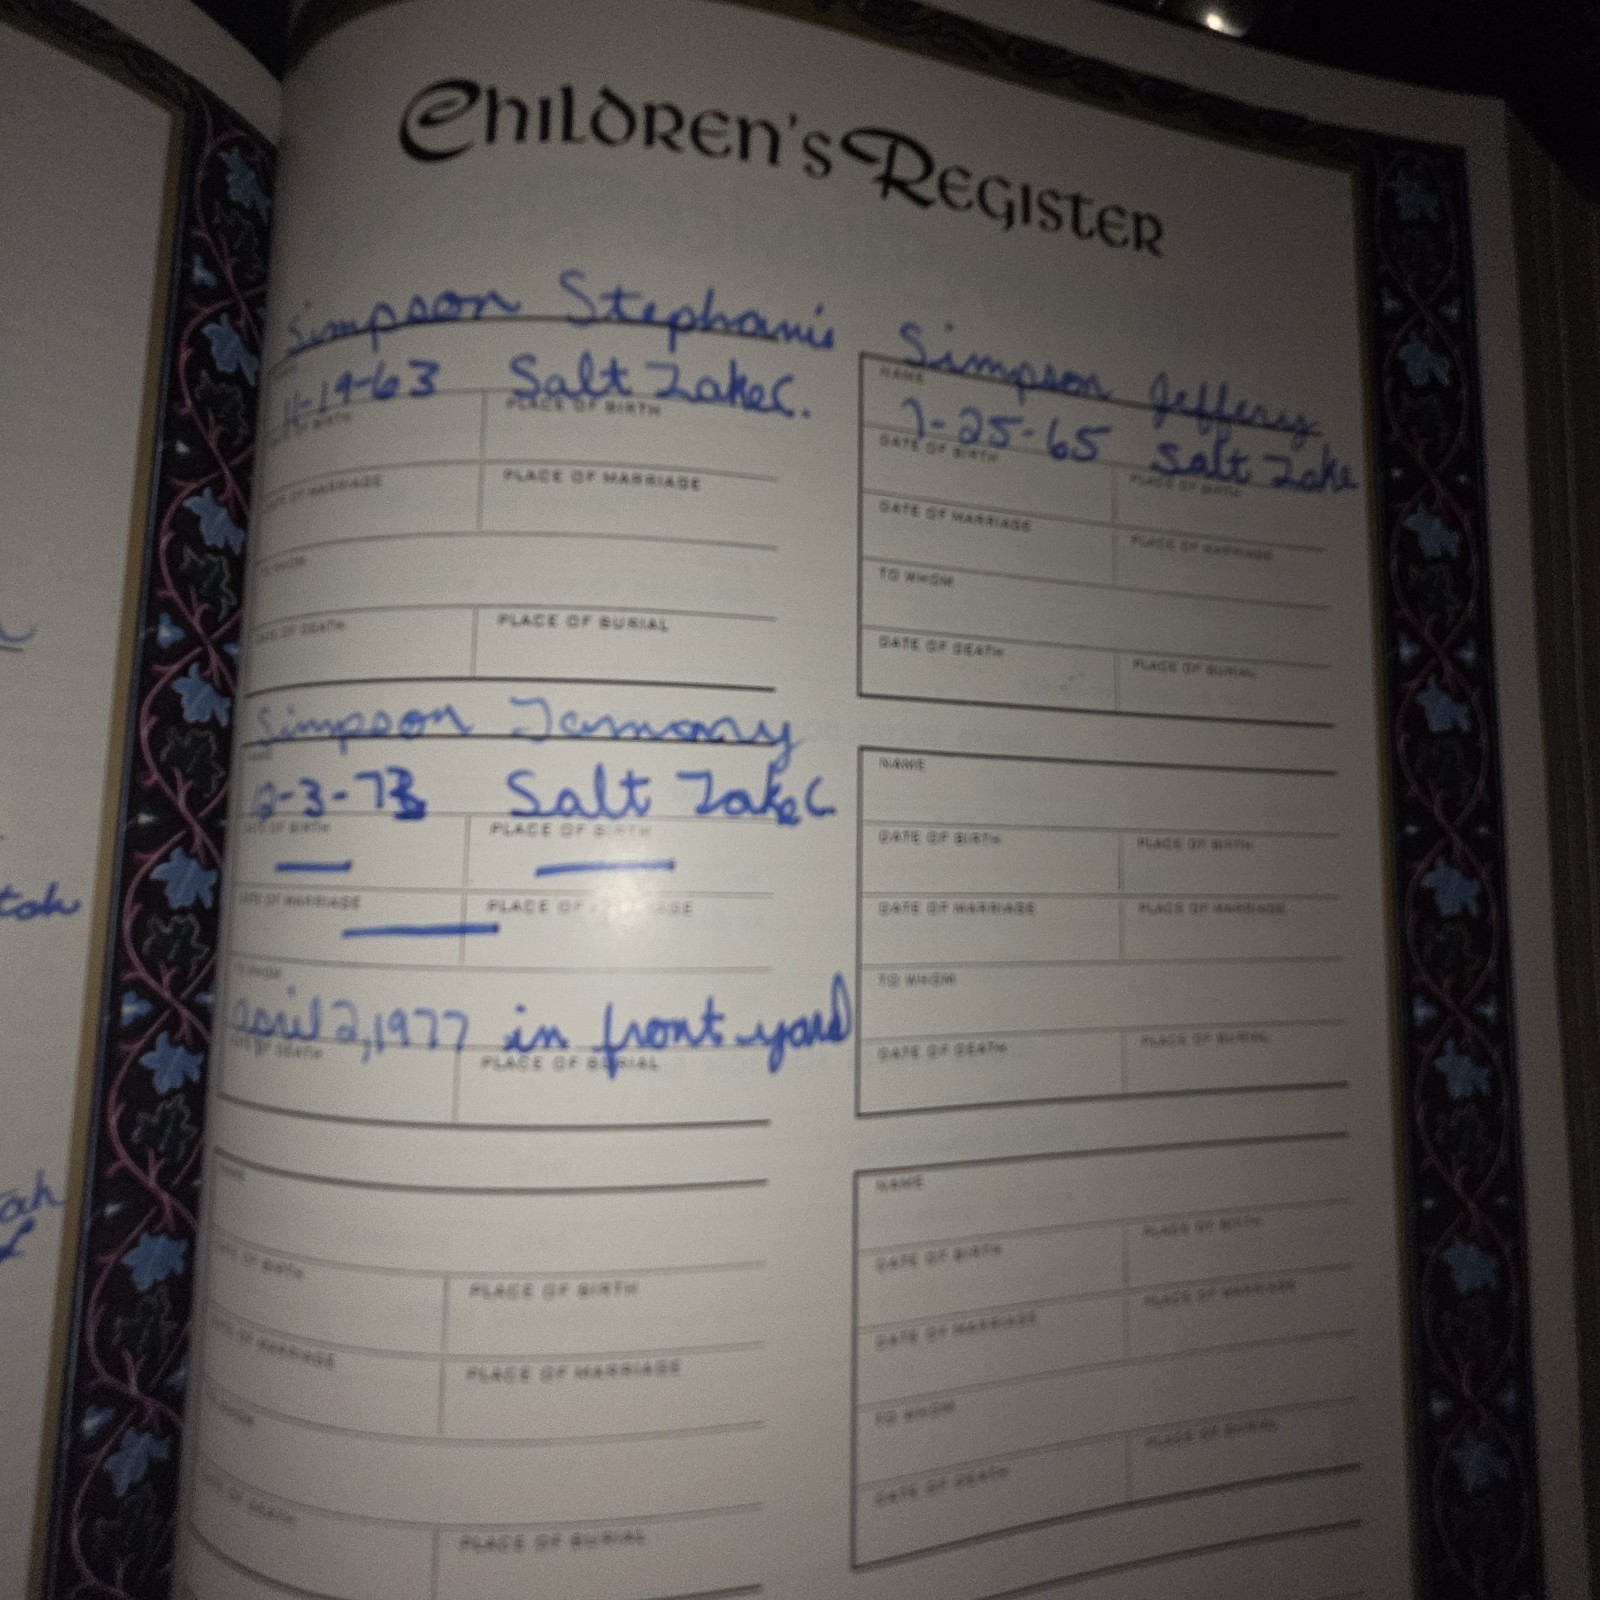 Children's Register
Simpson Stephanie
NAME
11-19-63 Salt Lake C.
DATE OF BIRTH PLACE OF BIRTH
DATE OF MARRIAGE PLACE OF MARRIAGE
TO WHOM
DATE OF DEATH PLACE OF BURIAL
Simpson Jeffery
NAME
7-25-65 Salt Lake
DATE OF BIRTH PLACE OF BIRTH
DATE OF MARRIAGE PLACE OF MARRIAGE
TO WHOM
DATE OF DEATH PLACE OF BURIAL
Simpson
NAME
12-3-73 Salt Lake C
DATE OF BIRTH PLACE OF BIRTH
DATE OF MARRIAGE PLACE OF MARRIAGE
TO WHOM
april 2, 1977 in front yard
DATE OF DEATH PLACE OF BURIAL
NAME
DATE OF BIRTH PLACE OF BIRTH
DATE OF MARRIAGE PLACE OF MARRIAGE
TO WHOM
DATE OF DEATH PLACE OF BURIAL
NAME
DATE OF BIRTH PLACE OF BIRTH
DATE OF MARRIAGE PLACE OF MARRIAGE
TO WHOM
DATE OF DEATH PLACE OF BURIAL
NAME
DATE OF BIRTH PLACE OF BIRTH
DATE OF MARRIAGE PLACE OF MARRIAGE
TO WHOM
DATE OF DEATH PLACE OF BURIAL